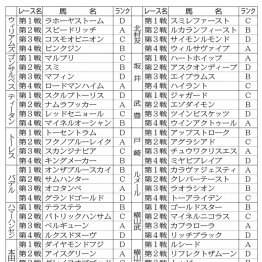 レース名 馬名 ランク レース名 馬名 ランク
第1戦 ラホーヤストーム D 第1戦 スミレファースト C
第2戦 スピードリッチ A 第2戦 ルカランフィースト B
第3戦 コスモオピニオン C 第3戦 サイモンルモンド D
第4戦 ピンクジン B 第4戦 ウィルサヴァイブ A
第1戦 マルプリ C 第1戦 ハートホイップ A
第2戦 スミ B 第2戦 アスクオンディープ D
第3戦 マフィン D 第3戦 エイブラムス B
第4戦 ロードマンハイム A 第4戦 ハイラント C
第1戦 スクルプトーリス D 第1戦 ジャガード C
第2戦 ナムラフッカー A 第2戦 エゾダイモン B
第3戦 レッドセニョール C 第3戦 ツインビスケッツ D
第4戦 マイネルオーシャン B 第4戦 ウインアクトゥール A
第1戦 トーセントラム D 第1戦 アップストローク B
第2戦 フクノブルーレイク A 第2戦 アグラシアド C
第3戦 スカンジナビア C 第3戦 チュウワクリスエス A
第4戦 キングメーカー B 第4戦 ミヤビアレイア D
第1戦 オンザブルースカイ B 第1戦 カラヴァジェスティ A
第2戦 サムハンター C 第2戦 クレパーテースト D
第3戦 オコタンペ A 第3戦 ラオラシオン B
第4戦 グランドゴールド D 第4戦 トーアライデン C
第1戦 テラステラ B 第1戦 ゴールドスター B
第2戦 パトリックハンサム C 第2戦 マイネルニコラス C
第3戦 ベルギューン A 第3戦 カブラローラ A
第4戦 ルクスドヌーヴ D 第4戦 リッチブラック D
第1戦 ダイヤモンドフジ D 第1戦 ルシード A
第2戦 アイスグリーン A 第2戦 リフレクトザムーン D